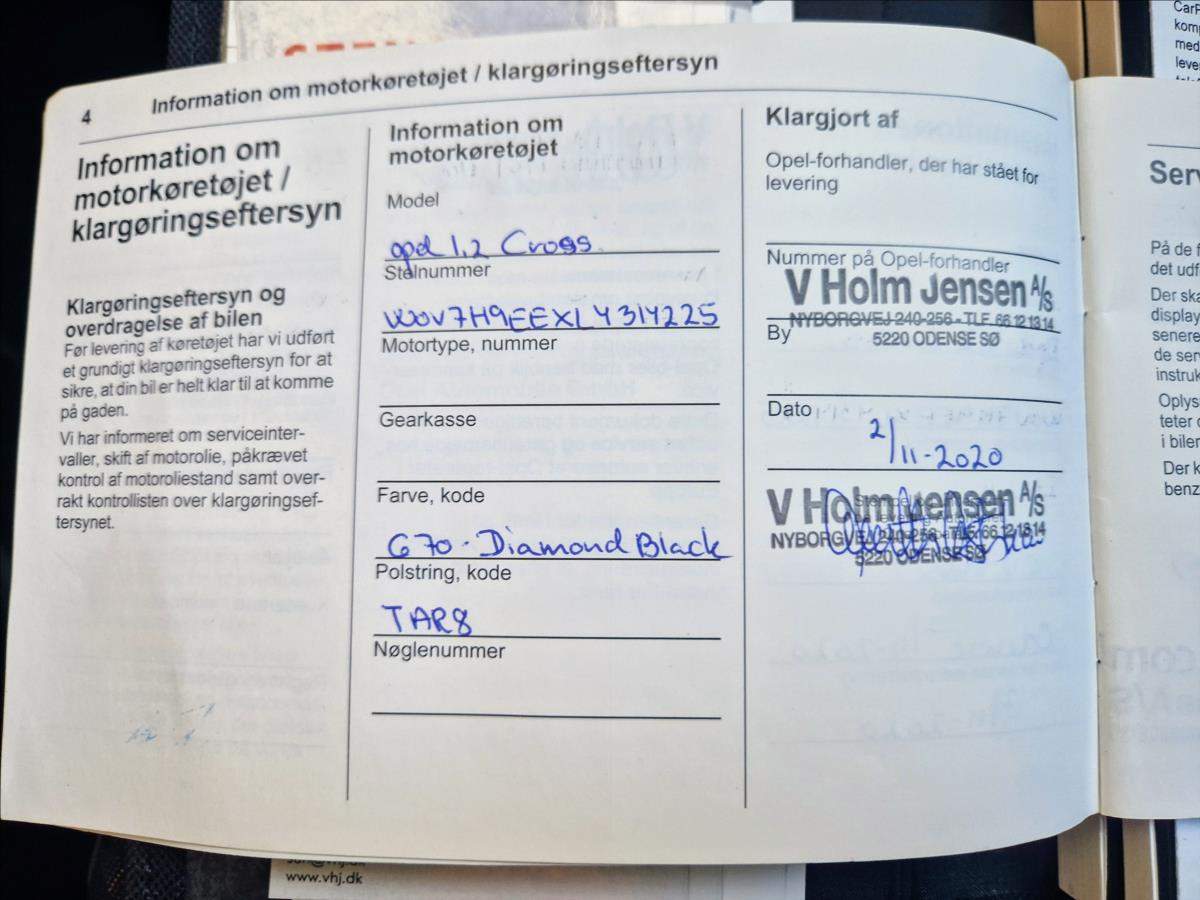 4 Information om motorkøretøjet / klargøringseftersyn
Information om
motorkøretøjet /
klargøringseftersyn
Klargøringseftersyn og
overdragelse af bilen
Før levering af køretøjet har vi udført
et grundigt klargøringseftersyn for at
sikre, at din bil er helt klar til at komme
på gaden.
Vi har informeret om serviceinter-
valler, skift af motorolie, påkrævet
kontrol af motoroliestand samt over-
rakt kontrollisten over klargøringsef-
tersynet.
Information om
motorkøretøjet
Model
opel 1,2 Cross
Stelnummer
W0V7H9EEXL4314225
Motortype, nummer
Gearkasse
Farve, kode
G70 - Diamond Black
Polstring, kode
TAR8
Nøglenummer
Klargjort af
Opel-forhandler, der har stået for
levering
Nummer på Opel-forhandler
V Holm Jensen A/S
NYBORGVEJ 240-256 - TLF. 66 12 13 14
5220 ODENSE SØ
By
Dato
2/11-2020
V Holm Jensen A/S
NYBORGVEJ 240-256 - TLF. 66 12 13 14
5220 ODENSE SØ
Serv
På de f
det udf
Der ska
display
senere
de serv
instruk
Oplys
teter o
i biler
Der k
benz
CarP
kom
med
leve
www.vhj.dk